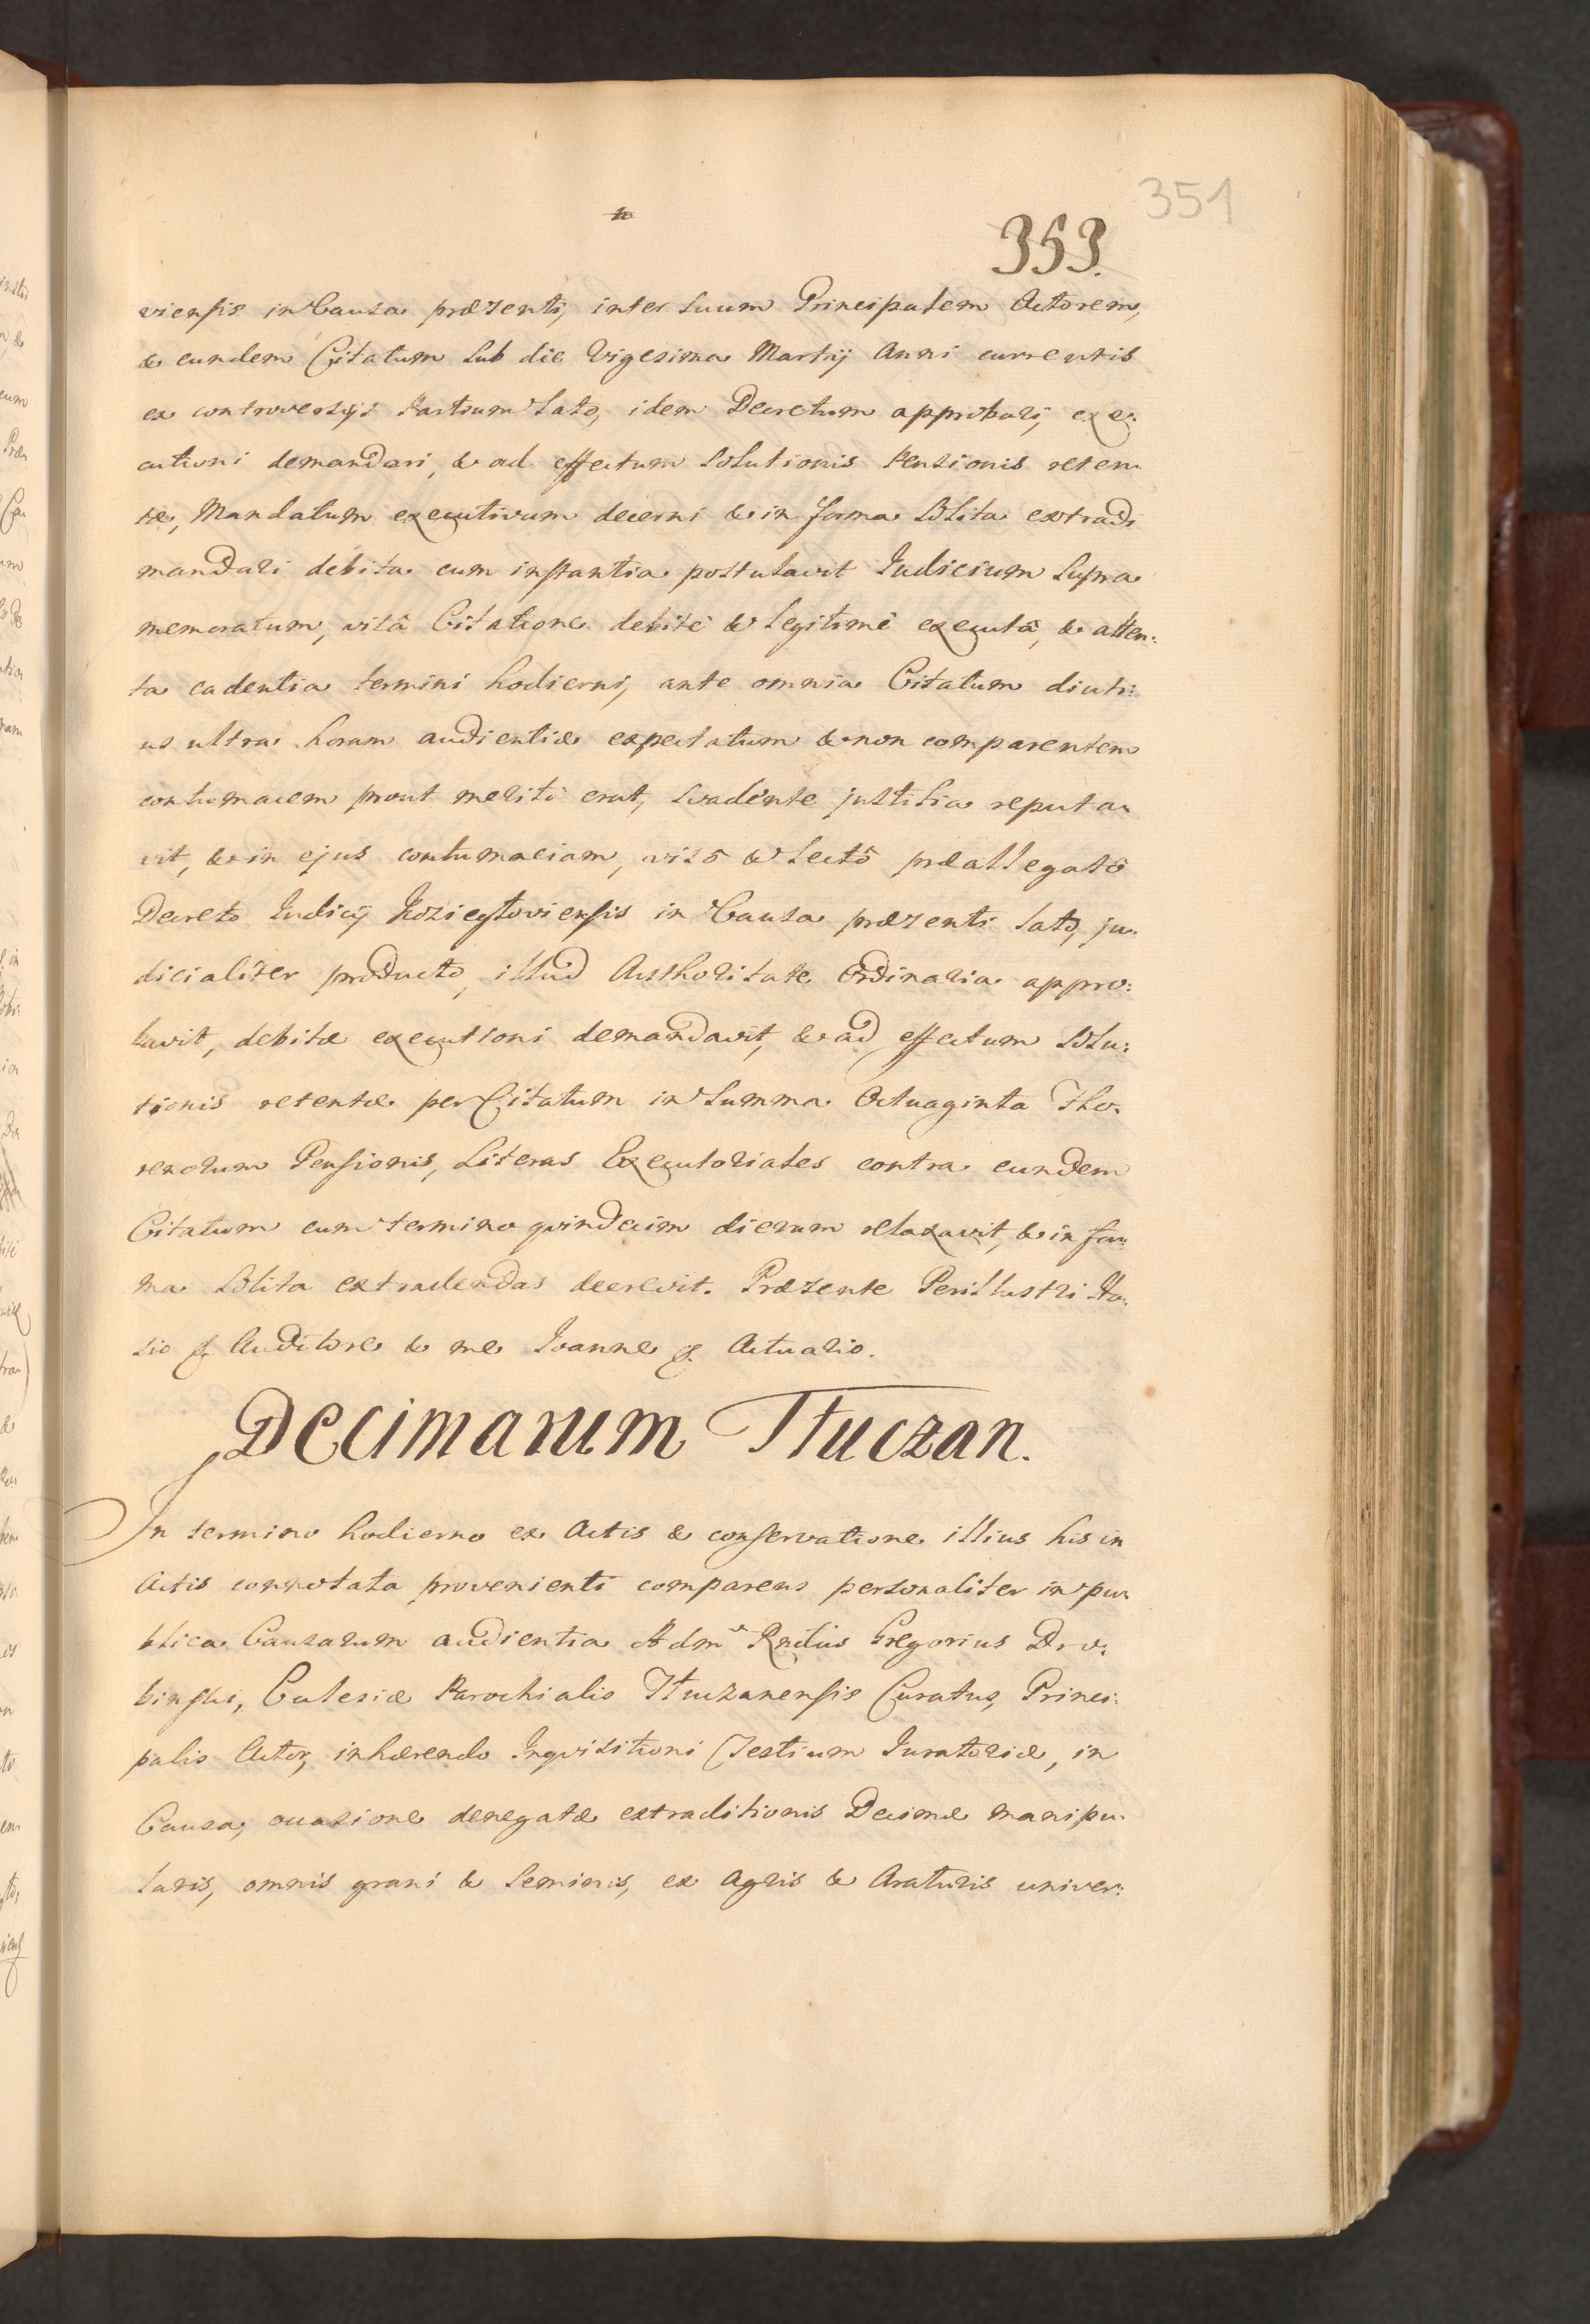 351
353.
viensis in Causa præsenti, inter suum Principalem Actorem,
& eundem Citatum sub die Vigesima Martij Anni currentis
ex controversijs Partium lato, idem Decretum approbari, exe:
cutioni demandari, & ad effectum solutionis Pensionis reten:
tæ, Mandatum executivum decerni & in forma solita extradi
mandari debita cum instantia postulavit Iudicium supra
memoratum, visâ Citatione debitè & legitimè executâ, & atten:
ta cadentia termini hodierni, ante omnia Citatum diuti:
us ultra horam audientiæ expectatum & non comparentem
contumacem prout meritò erat, svadente justitia reputa:
vit, & in ejus contumaciam, visô & lectô præallegatô
Decreto Iudicij Kozieglowiensis in Causa præsenti lato, ju:
dicialiter producto, illud Authoritate Ordinaria appro:
bavit, debitæ executioni demandavit, & ad effectum solu:
tionis retentæ per Citatum in summa Octuaginta Flo:
renorum Pensionis, Literas Executoriales contra eundem
Citatum cum termino qvindecim dierum relaxavit, & in for:
ma solita extradendas decrevit. Præsente Perillustri Ho:
sio q. Auditore & me Ioanne q. Actuario.
Decimarum Tłuczan.
In termino hodierno ex Actis & conservatione illius his in
Actis connotata provenienti comparens personaliter in pu:
blica Causarum audientia Adm Rndus Gregorius Dro:
binski, Ecclesiæ Parochialis Tłuczanensis Curatus, Princi:
palis Actor, inhærendo Inqvisitioni Testium Iuratoriæ, in
Causa, occasione denegatæ extraditionis Decimæ manipu:
laris, omnis grani & seminis, ex Agris & Araturis univer: